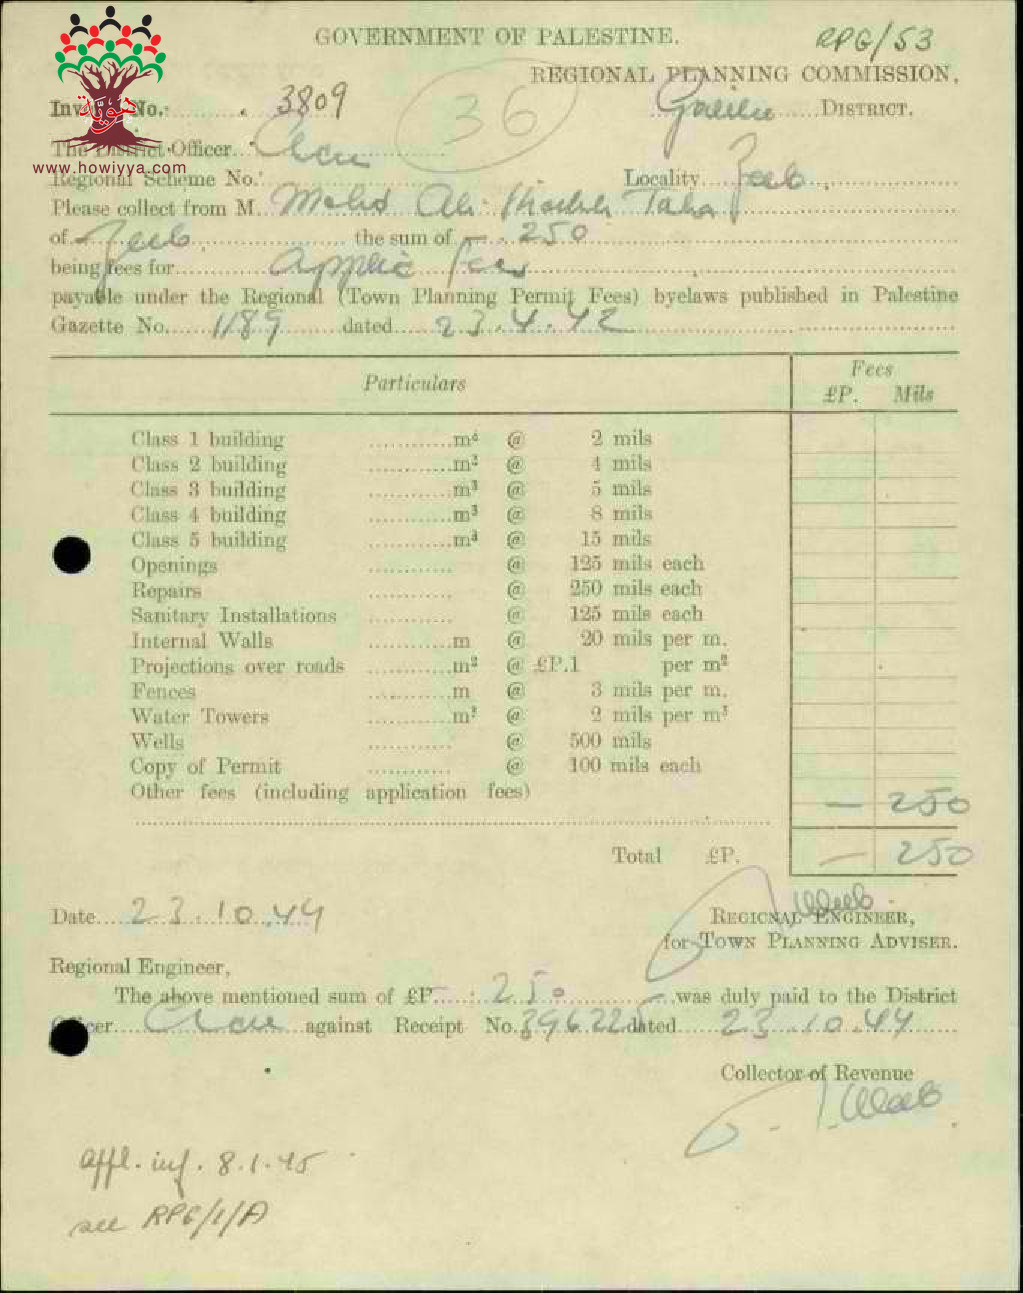 GOVERNMENT OF PALESTINE.
RPG/53
REGIONAL PLANNING COMMISSION,
Galilee DISTRICT.
No. 3809
36
هوية
www.howiyya.com
The District Officer Acre
Regional Scheme No.
Locality Zeeb
Please collect from M. Mohd Ali Taha
of Zeeb, the sum of —. 250
being fees for Applic Fees
payable under the Regional (Town Planning Permit Fees) byelaws published in Palestine
Gazette No. 1189 dated 23.4.42
Particulars Fees
£P. Mils
Class 1 building m² @ 2 mils
Class 2 building m² @ 4 mils
Class 3 building m³ @ 5 mils
Class 4 building m³ @ 8 mils
Class 5 building m³ @ 15 mils
Openings @ 125 mils each
Repairs @ 250 mils each
Sanitary Installations @ 125 mils each
Internal Walls m @ 20 mils per m.
Projections over roads m² @ £P.1 per m²
Fences m @ 3 mils per m.
Water Towers m³ @ 2 mils per m³
Wells @ 500 mils
Copy of Permit @ 100 mils each
Other fees (including application fees) — 250
Total £P. — 250
Date 23.10.44
REGIONAL ENGINEER,
for TOWN PLANNING ADVISER.
Regional Engineer,
The above mentioned sum of £P. —: 250 — was duly paid to the District
Officer Acre against Receipt No. 396225 dated 23.10.44
Collector of Revenue
appl. inf. 8.1.45
see RPG/1/A